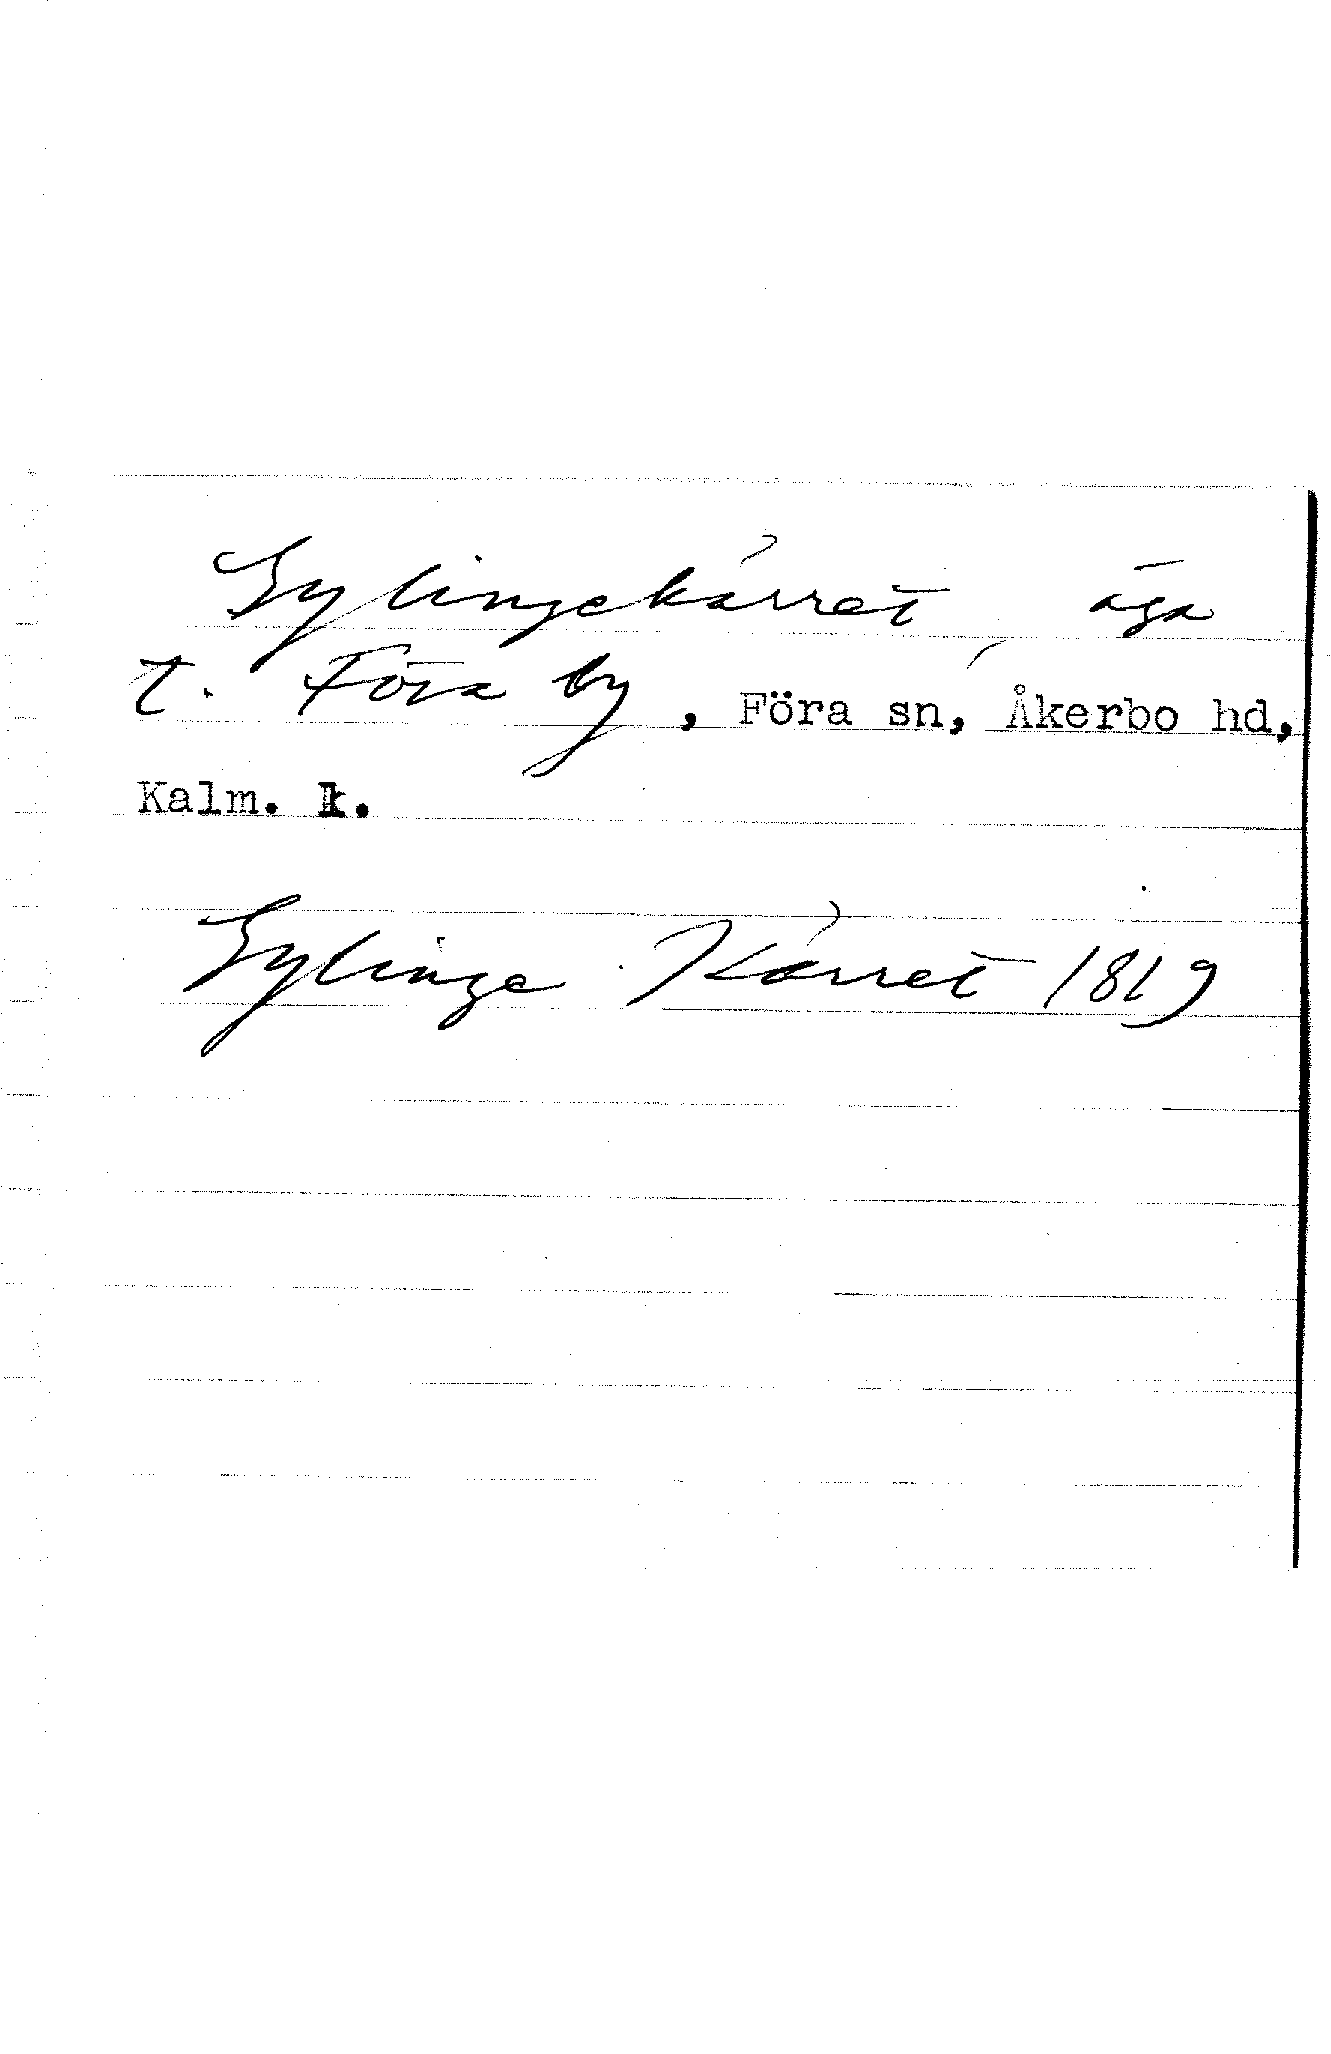 Sylingekärret, äga
t. Föra by, Föra sn, Åkerbo hd,
Kalm. l.
Sylinge Kärret 1819